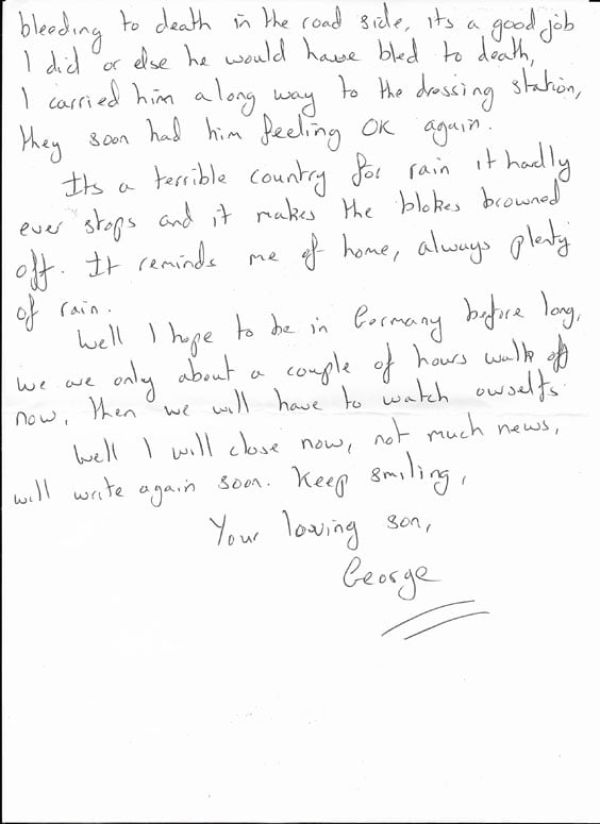 bleeding to death in the road side, its a good job
I did or else he would have bled to death,
I carried him a long way to the dressing station,
they soon had him feeling OK again.
Its a terrible country for rain it hadly
ever stops and it makes the blokes browned
off. It reminds me of home, always plenty
of rain.
Well I hope to be in Germany before long,
we are only about a couple of hours walk off
now, then we will have to watch owrselfs
Well I will close now, not much news,
will write again soon. Keep smiling,
Your loving son,
George